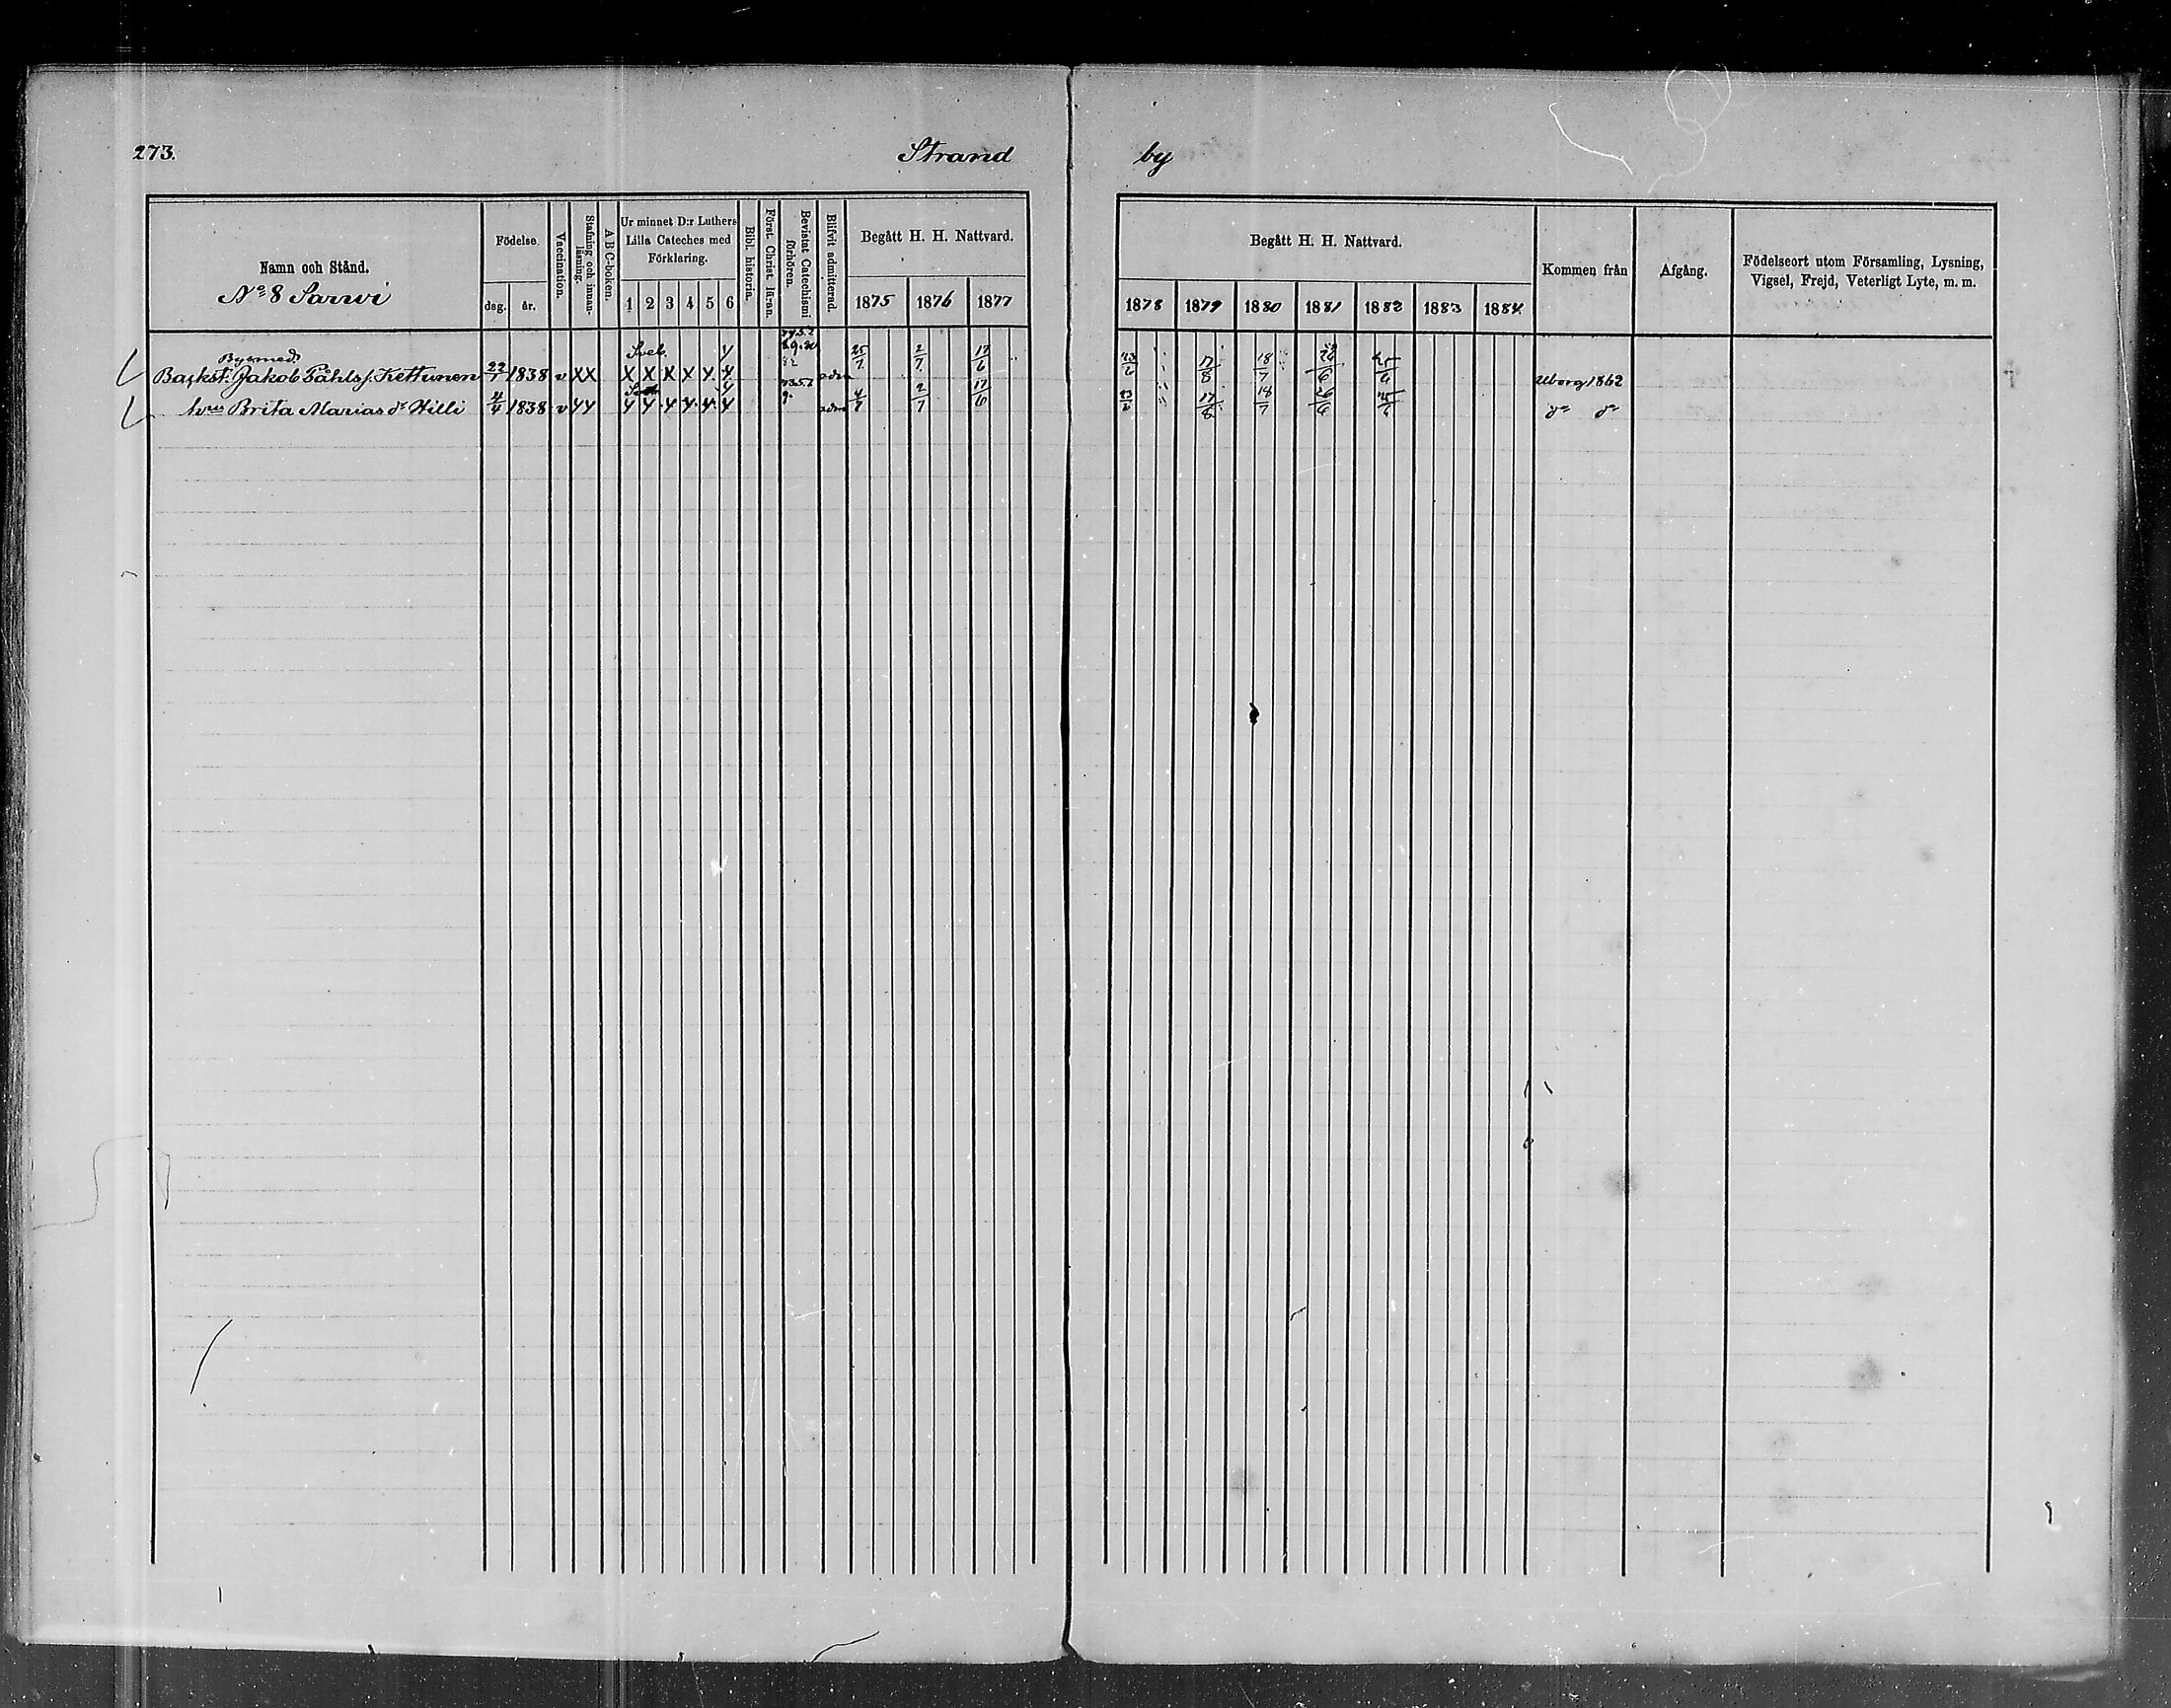 273. Strand by
Namn och Stånd.
No 8 Sarwi
Födelse.
dag. år.
Vaccination.
Stafning och innanläsning.
A B C-boken.
Ur minnet D:r Luthers Lilla Cateches med Förklaring.
1 2 3 4 5 6
Bibl. historia.
Först. Christ. läran.
Bevistat Catechismi förhören.
Blifvit admitterad.
Begått H. H. Nattvard.
1875 1876 1877
Begått H. H. Nattvard.
1878 1879 1880 1881 1882 1883 1884
Kommen från
Afgång.
Födelseort utom Församling, Lysning, Vigsel, Frejd, Veterligt Lyte, m. m.
Bysmed Sveb.
Jakob Påhls s. Kettunen 22/7 1838 v X X X X X X X 25/7 2/7 17/6 23/6 17/8 18/7 26/6 25/6 Uborg 1862
hus Brita Marias dr Hilli 4/4 1838 v adm 4/7 2/7 17/6 23/6 17/8 18/7 26/6 25/6 do do